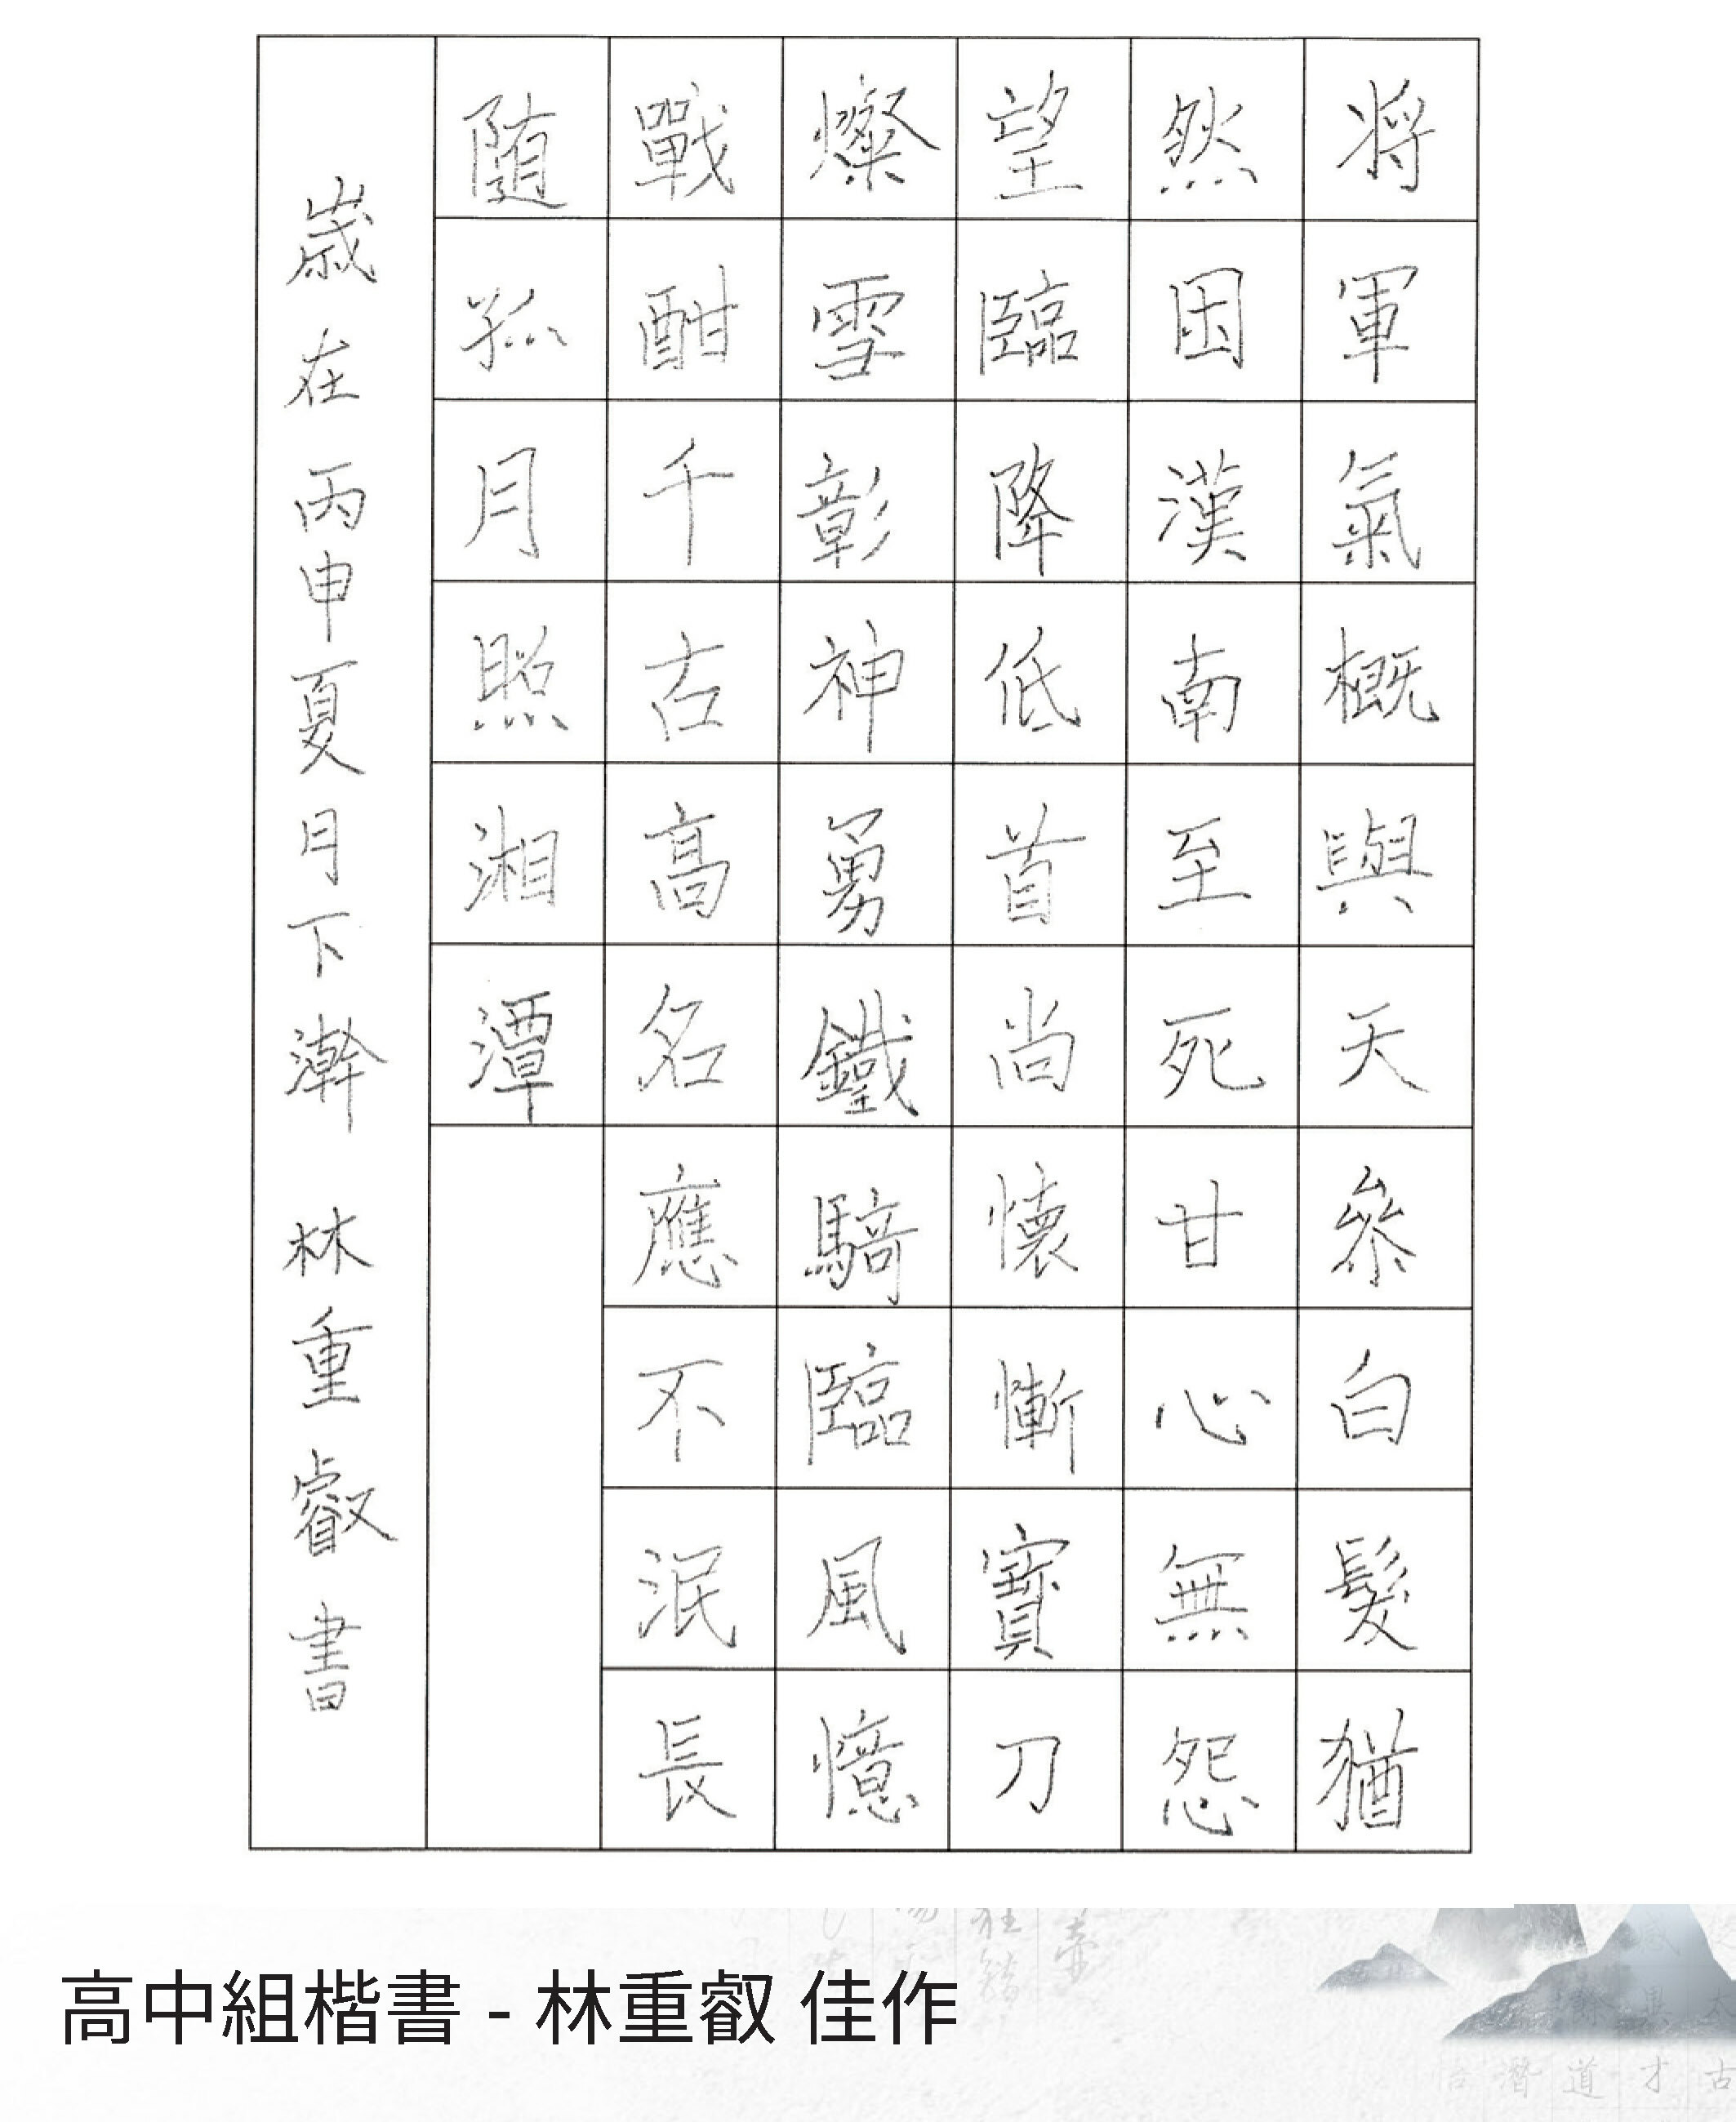 將軍氣概與天參白髮猶
然困漢南至死甘心無怨
望臨降低首尚懷慚寶刀
燦雪彰神勇鐵騎臨風憶
戰酣千古高名應不泯長
随孤月照湘潭
歲在丙申夏月下澣 林重叡書
高中組楷書 - 林重叡 佳作